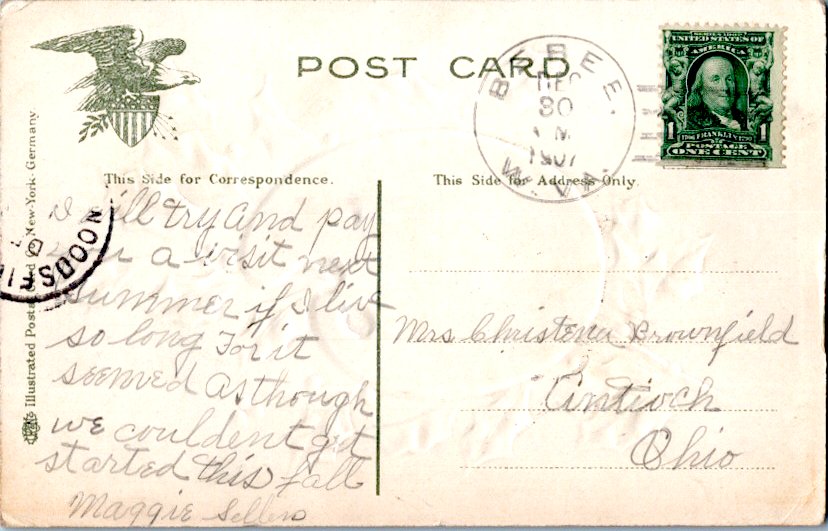 POST CARD
BYBEE.
DEC
30
M
1907
W. VA.
SERIES 1902
UNITED STATES OF
AMERICA
1 FRANKLIN 1
POSTAGE
ONE CENT
This Side for Correspondence.
This Side for Address Only.
I will try and pay
you a visit next
summer if I live
so long for it
seemed as though
we couldent get
started this fall
Maggie Sellers
Mrs Christena Brownfield
Antioch
Ohio
Illustrated Postal Card Co. New-York-Germany
WOODSFI